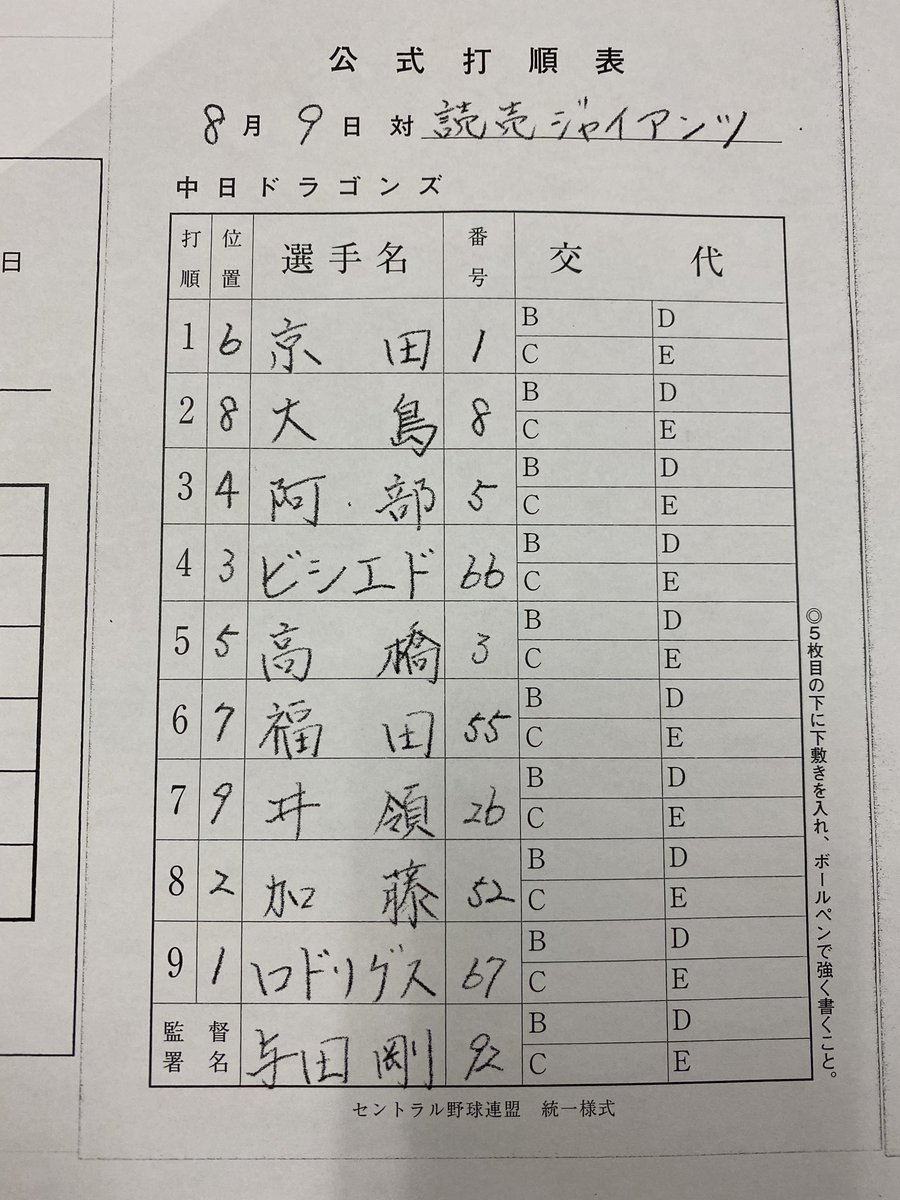 公式打順表
8月9日 対 読売ジャイアンツ
中日ドラゴンズ
打順 位置 選手名 番号 交代
1 6 京田 1 B D C E
2 8 大島 8 B D C E
3 4 阿部 5 B D C E
4 3 ビシエド 66 B D C E
5 5 高橋 3 B D C E
6 7 福田 55 B D C E
7 9 井領 26 B D C E
8 2 加藤 52 B D C E
9 1 ロドリゲス 67 B D C E
監督署名 与田剛 92 B D C E
セントラル野球連盟 統一様式
◎5枚目の下に下敷きを入れ、ボールペンで強く書くこと。
日